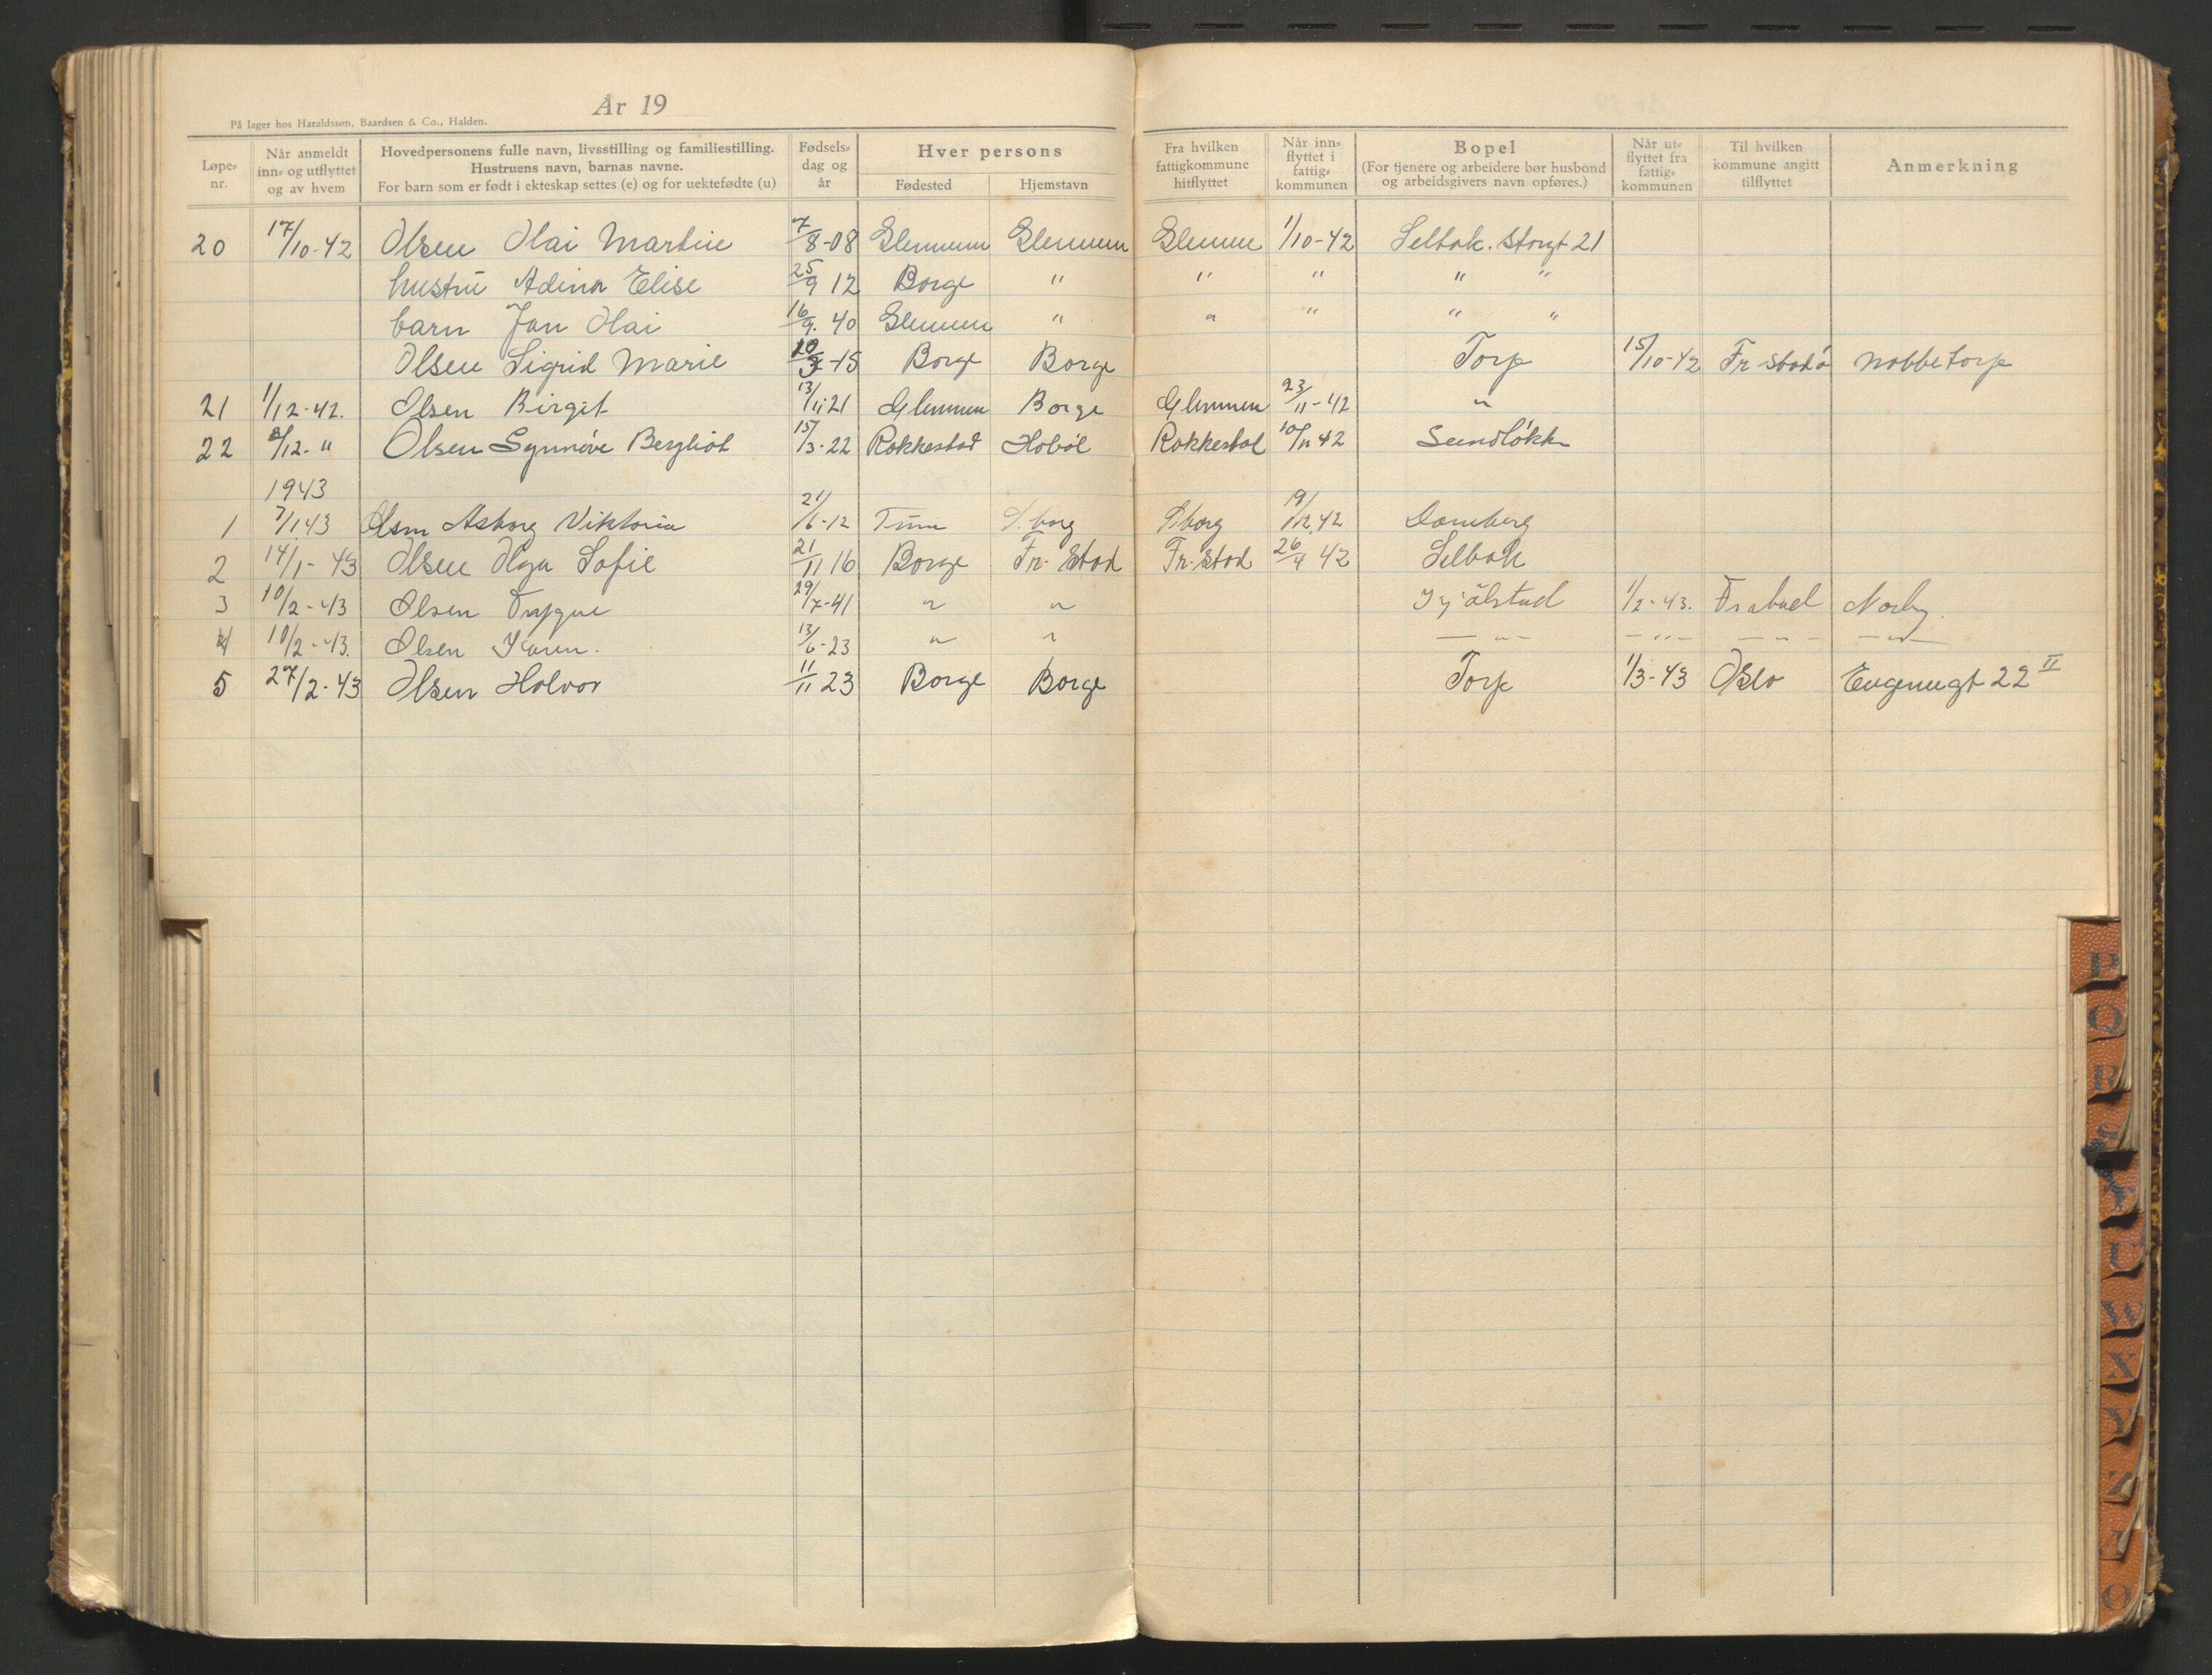 År 19
På lager hos Haraldssøn, Baardsen & Co., Halden.
Løpe-nr. Når anmeldt inn- og utflyttet og av hvem Hovedpersonens fulle navn, livsstilling og familiestilling. Hustruens navn, barnas navne. For barn som er født i ekteskap settes (e) og for uektefødte (u) Fødsels-dag og år Hver persons Fødested Hjemstavn Fra hvilken fattigkommune hitflyttet Når inn-flyttet i fattig-kommunen Bopel (For tjenere og arbeidere bør husbond og arbeidsgivers navn opføres.) Når ut-flyttet fra fattig-kommunen Til hvilken kommune angitt tilflyttet Anmerkning
20 17/10-42 Olsen Olai Martin 7/8-08 Glemmen Glemmen Glemmen 1/10-42 Selbak. Storgt 21
hustru Adina Elise 25/9 12 Borge " " " " "
barn Jan Olai 16/9. 40 Glemmen " " " " "
Olsen Sigrid Marie -15 Borge Borge Torp 15/10-42 Fr-stad Nabbetorp
21 1/12-42. Olsen Birgit 13/11-21 Glemmen Borge Glemmen 23/11-42 "
22 /12- " Olsen Synnøve Bergliot 15/3-22 Rakkestad Hobøl Rakkestad 10/11 42 Sundløkka
1943
1 7/1 43 Olsen Asborg Viktoria 21/6-12 Tune S.borg S.borg 19/12 42 Damberg
2 14/1-43 Olsen Olga Sofie 21/11 16 Borge Fr. stad Fr. stad 26/4 42 Selbak
3 10/2-43 Olsen Trygve 29/7-41 " " 1/2-43. Norby.
4 10/2-43. Olsen Karen. 13/6-23 " " — " — — " — — " — — " —
5 27/2-43 Olsen Halvor 11/11 23 Borge Borge Torp 1/3-43 Oslo Eugenugt 22 II
E